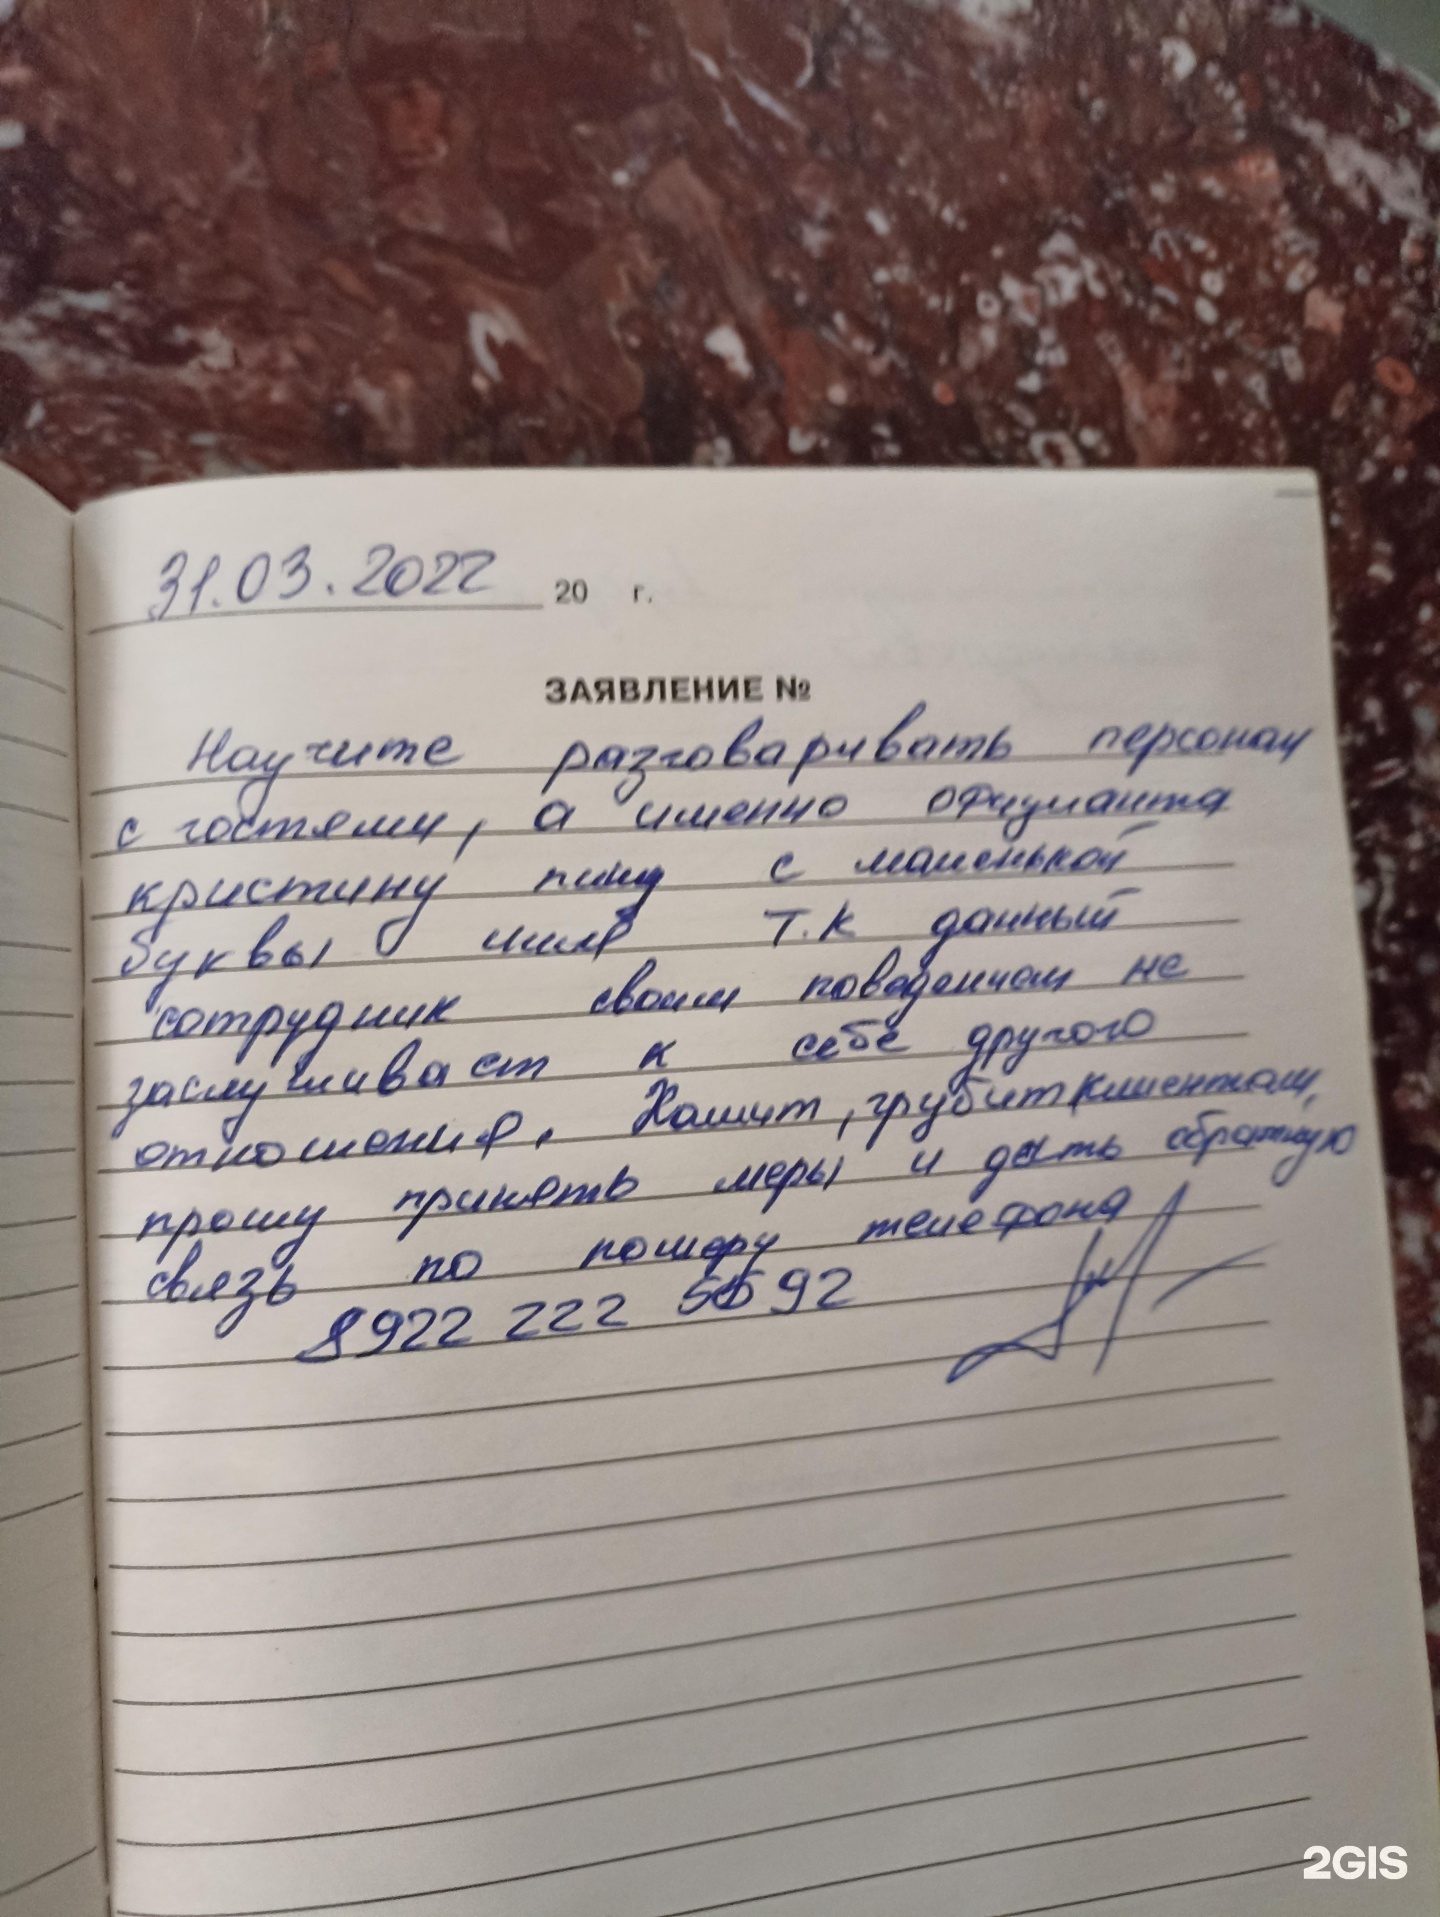 31.03.2022 20 г.
ЗАЯВЛЕНИЕ №
Научите разговаривать персонал
с гостями, а именно официанта
кристину пишу с маленькой
буквы имя т.к данный
сотрудник своим поведением не
заслуживает к себе другого
отношения. Хамит, грубит клиентам,
прошу принять меры и дать обратную
связь по номеру телефона
8922 222 5592
2GIS